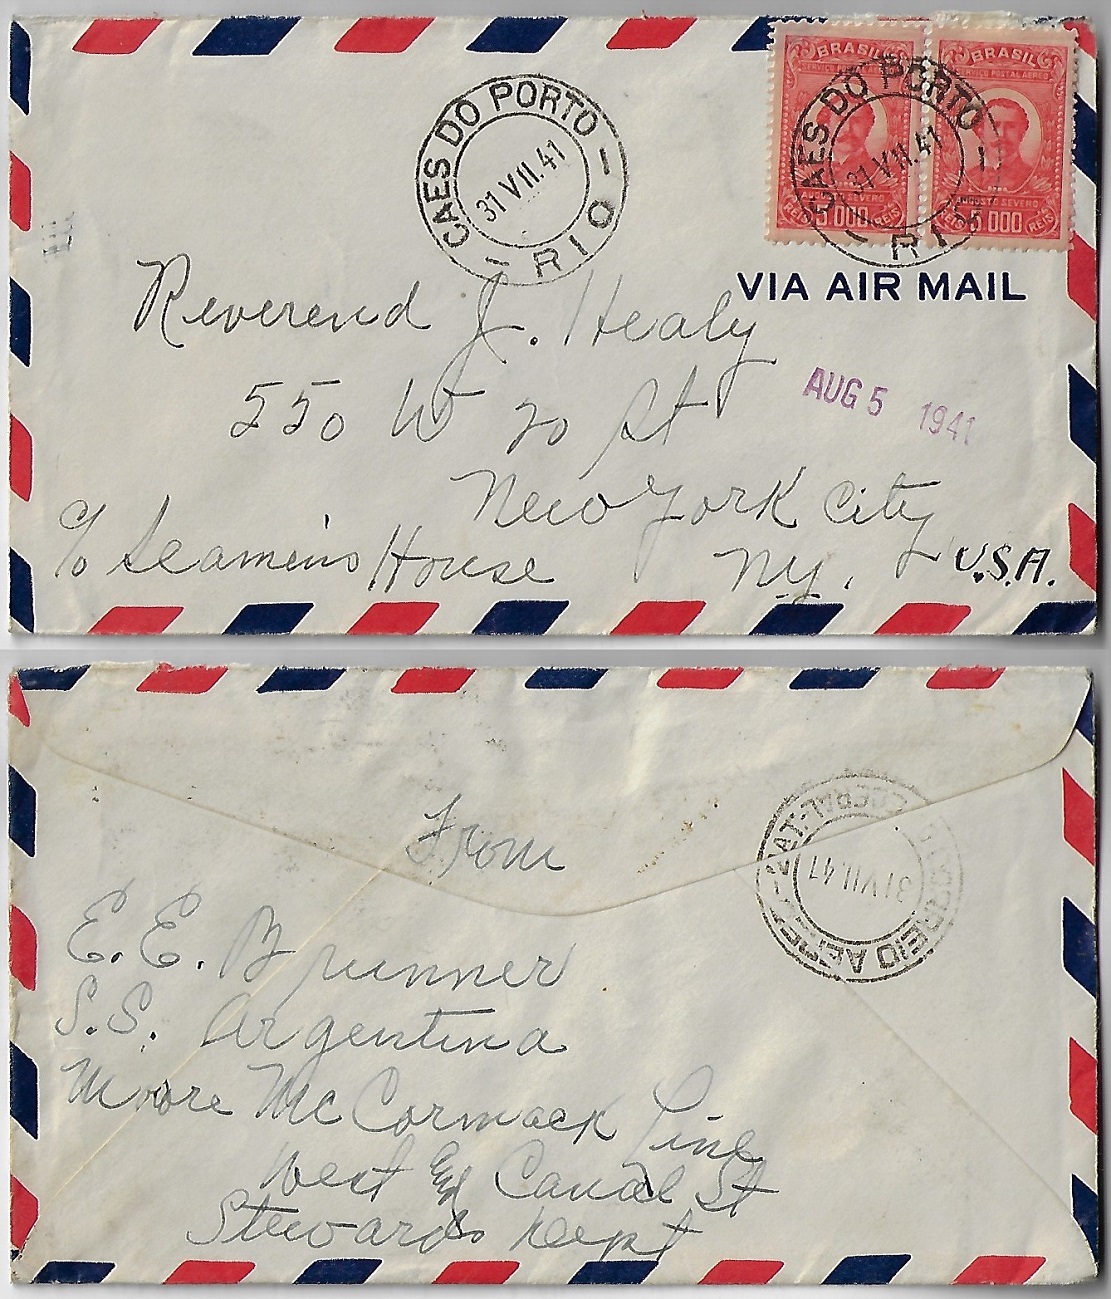 BRASIL BRASIL
SERVIÇO POSTAL AEREO
AUGUSTO SEVERO AUGUSTO SEVERO
5.000 REIS 5.000 REIS
CAES DO PORTO
31 VII.41
RIO
CAES DO PORTO
31 VII.41
RIO
VIA AIR MAIL
Reverend J. Healy
550 W 20 St
AUG 5 1941
New York City
c/o Seamens House N.Y. U.S.A.
From
E. E. Brunner
S.S. Argentina
Moore McCormack Line
West End Canal St
Stewards Dept
31 VII.41